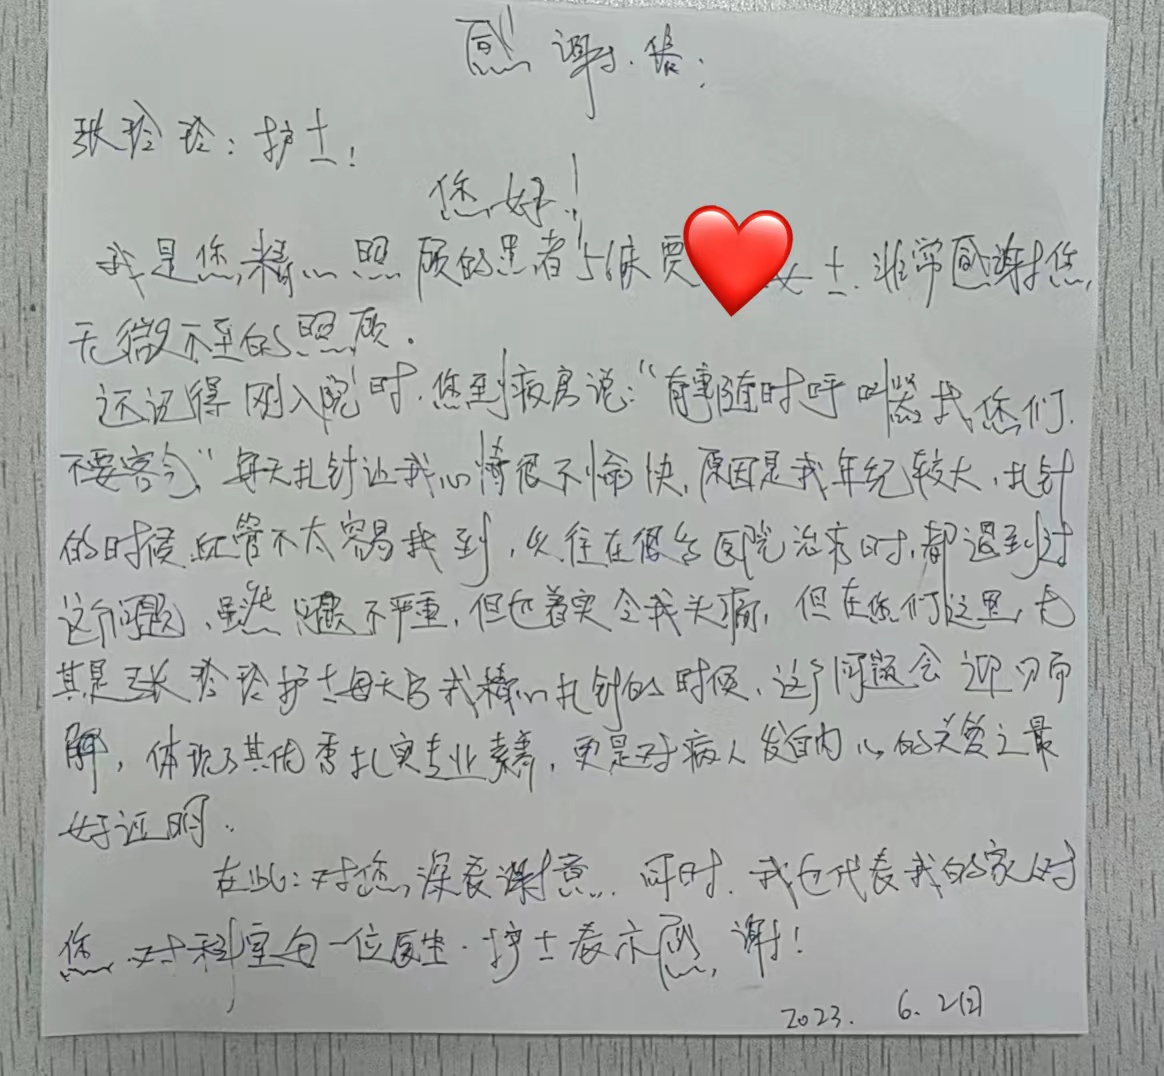 感谢信:
张玲玲:护士!
您好!
我是您精心照顾的患者56床贾 女士.非常感谢您,
无微不至的照顾.
还记得刚入院时.您到病房说:“有事随时呼叫器找您们.
不要客气”每天扎针让我心情很不愉快,原因是我年纪较大,扎针
的时候血管不太容易找到,以往在很多医院治疗时,都遇到过
这个问题,虽然问题不严重,但也着实令我头痛,但在您们这里,尤
其是张玲玲护士每天与我精心扎针的时候,这个问题会迎刃而
解,体现了其优秀扎实专业素养,更是对病人发自内心的关爱之最
好证明.
在此:对您,深表谢意.同时.我也代表我的家人对
您.对科室每一位医生.护士表示感谢!
2023. 6.2日